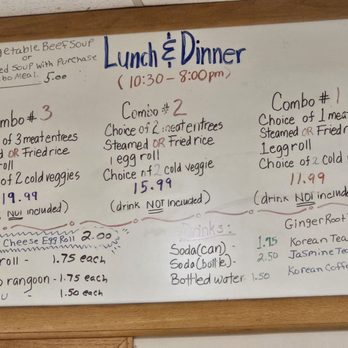 getable Beef Soup
or
ed Soup with Purchase
bo Meal. 5.00
Lunch & Dinner
(10:30 - 8:00pm)
mbo # 3
of 3 meat entrees
ed OR Fried rice
roll
of 2 cold veggies
19.99
NOT included)
Combo # 2
Choice of 2 meat entrees
Steamed OR Fried rice
1 eggroll
Choice of 2 cold veggie
15.99
(drink NOT Included)
Combo # 1
Choice of 1 meat
Steamed OR Fried
1 eggroll
Choice of 2 cold
11.99
(drink NOT inclu
Cheese Egg Roll 2.00
roll - 1.75 each
o rangoon - 1.75 each
1.50 each
Drinks:
Soda (can) - 1.95
Soda (bottle) - 2.50
Bottled water - 1.50
Ginger Root
Korean Tea
Jasmine Tea
Korean Coffe